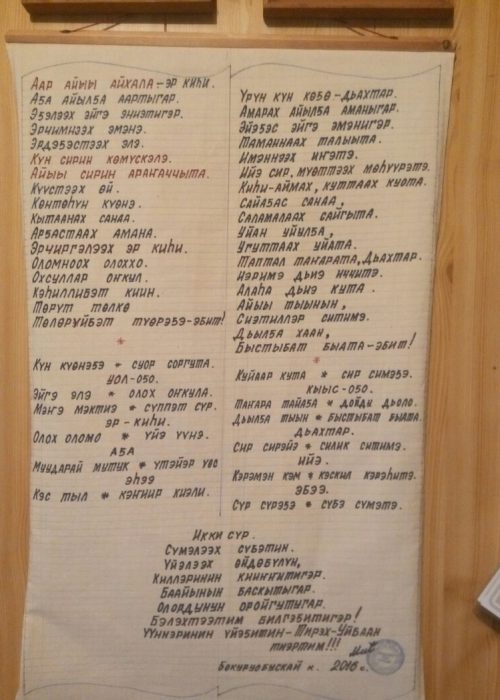 Аар айыы айхала – эр киһи.
Аба айылба аартыгар.
Эбэлээх эйгэ эниэтигэр.
Эрчимнээх эмэнэ.
Эрдэбэстээх элэ.
Күн сирин көмүскэлэ.
Айыы сирин араҥаччыта.
Күүстээх өй.
Көнтөһүн күөнэ.
Кытаанах санаа.
Арбастаах амана.
Эрчиргэлээх эр киһи.
Оломноох олоххо.
Охсуллар оҥкул.
Кэһиллибэт киин.
Төрүт төлкө
Төлөрүйбэт түөрэбэ-эбит!
*
Күн күөнэбэ * суор соргута.
уол-обо.
Эйгэ элэ * олох оҥкула.
Мэҥэ мэктиэ * суппэт сүр.
эр-киһи.
Олох оломо * үйэ үүнэ.
аба
Муударай мутук * үтэйэр үөс
эһээ
Кэс тыл * кэҥиир киэли.
Үрүҥ күн көбө – дьахтар.
Амарах айылба аманыгар.
Эйэбэс эйгэ эмэнигэр.
Таманнаах талыыта.
Имэннээх ингэтэ.
Ийэ сир, муөттээх мөһүүрэтэ.
Киһи-аймах, куттаах куота.
Сайабас санаа,
Саламалаах сайгыта.
Уйан уйулба,
Угуттаах уйата.
Таптал таҥарата, Дьахтар.
Иэримэ дьиэ иччитэ.
Алаһа дьиэ кута.
Айыы тыынын,
Сиэтиллэр ситимэ.
Дьылба хаан,
Быстыбат быата-эбит!
*
Куйаар кута * сир симэбэ.
кыыс-обо.
Таҥара тайаба * дойду дьоло.
Дьылба тыын * быстыбат быата.
дьахтар.
Сир сирэйэ * силик ситимэ.
ийэ.
Кэрэмэн кэм * кэскил кэрэһитэ.
эбээ.
Сүр сүрэбэ * сүбэ сүмэтэ.
Икки сүр.
Сүмэлээх сүбэтин.
Үйэлээх өйдөбүлүн,
Киллэринин книникитигэр.
Баайынын баскытыгар.
Олордунун оройгутугар.
Бэлэхтээтим билгэбитигэр!
Үүннэринин үйэбитин-Тирэх-Уйбаан
тиэртим!!!
2016 с.